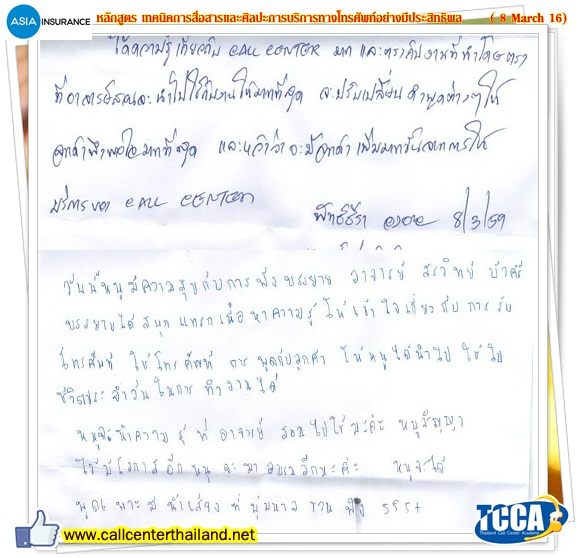 ASIA INSURANCE หลักสูตร เทคนิคการสื่อสารและศิลปะการบริการทางโทรศัพท์อย่างมีประสิทธิผล ( 8 March 16)
ได้ความรู้เกี่ยวกับ CALL CENTER มาก และตรงกับงานที่ทำโดยตรง
ที่อาจารย์สอนจะนำไปใช้กับงานให้มากที่สุด จะปรับเปลี่ยนคำพูดต่างๆ ให้
ลูกค้าพึงพอใจมากที่สุด และหวังว่าจะมีลูกค้าเพิ่มมากขึ้นจากการให้
บริการของ CALL CENTER
8/3/59
วันนี้หนูมีความสุขกับการฟังบรรยาย อาจารย์ สรวิทย์ บัวศรี
บรรยายได้สนุก แทรกเนื้อหาความรู้ ให้เข้าใจเกี่ยวกับการรับ
โทรศัพท์ ใช้โทรศัพท์ การพูดกับลูกค้า ให้หนูได้นำไปใช้ใน
ชีวิตประจำวันในการทำงานได้
หนูจะนำความรู้ที่อาจารย์สอนไปใช้นะค่ะ หนูสัญญา
มีโอกาสอีก หนูจะมา อีกนะค่ะ หนูจะได้
พูดเพราะมีน้ำเสียงที่นุ่มนวลชวนฟัง 555+
www.callcenterthailand.net
TCCA
Thailand Call Center Academy